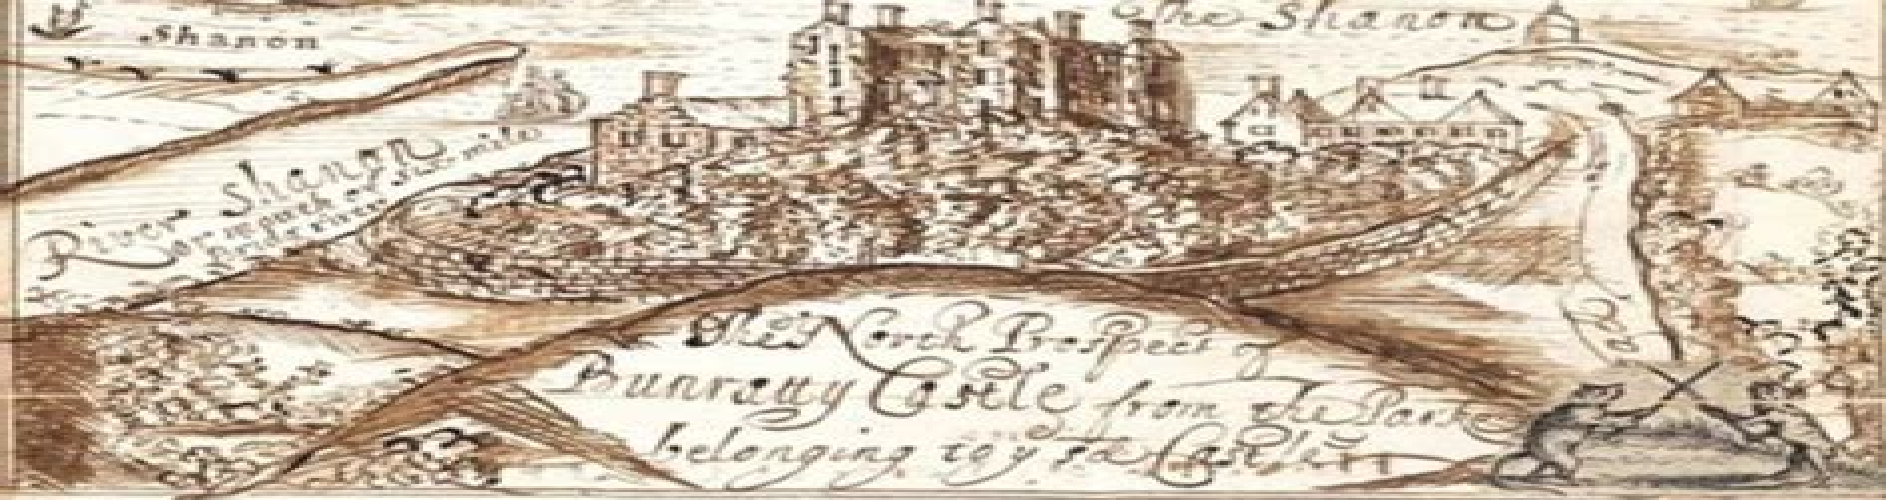 Shanon
The Shanon
River Shanon
The North Prospect of
Bunratty Castle from the Park
belonging to ye Castle